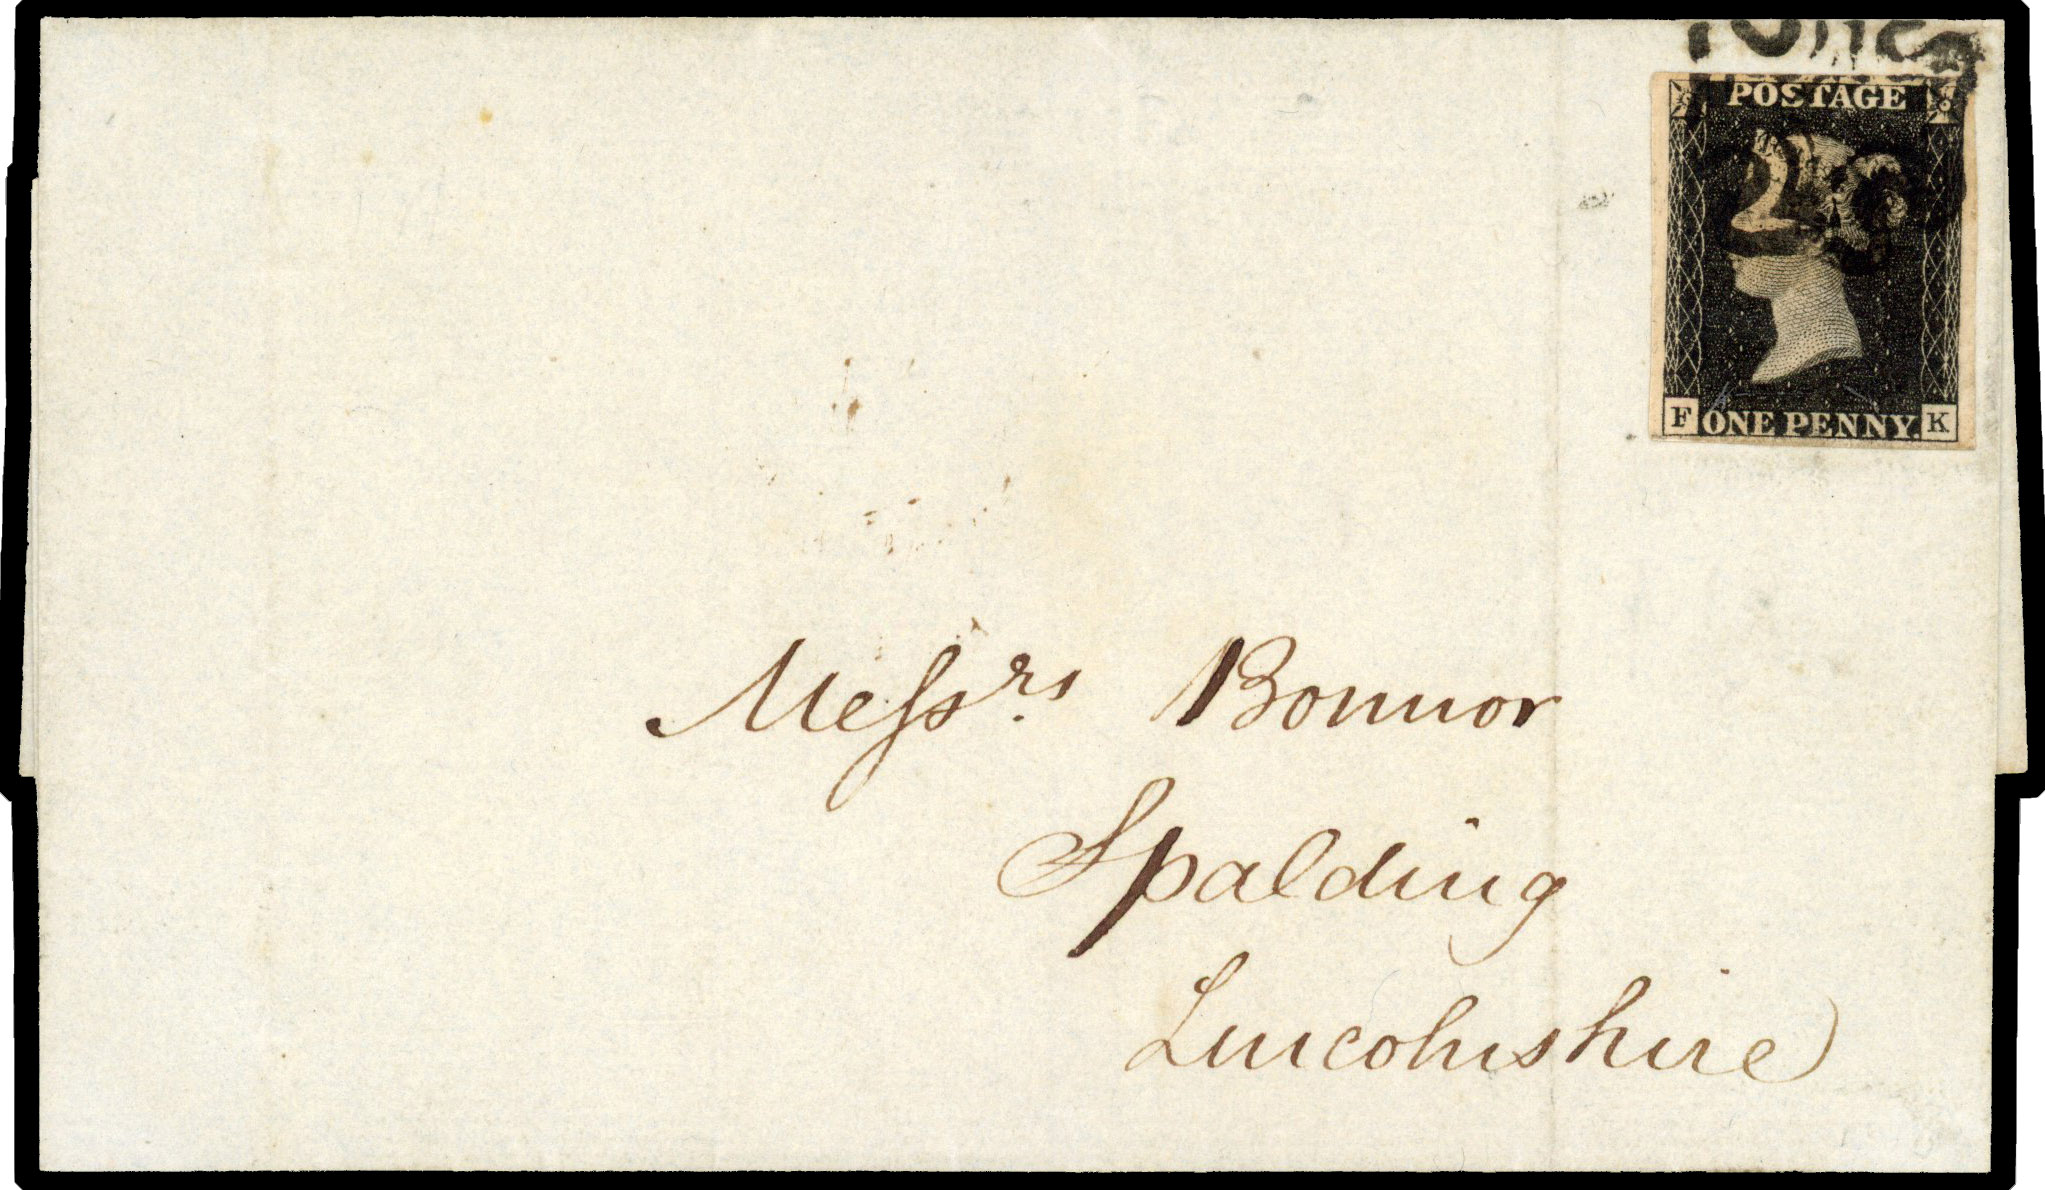 POSTAGE
F ONE PENNY. K
Meſsrs. Bonnor
Spalding
Lincolnshire